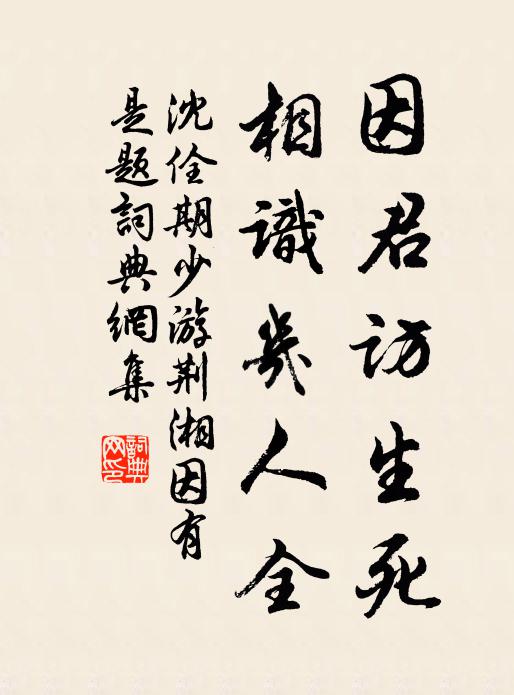 因君访生死
相識幾人全
沈佺期少游荆湘因有
是题詞典網集
詞典
网印